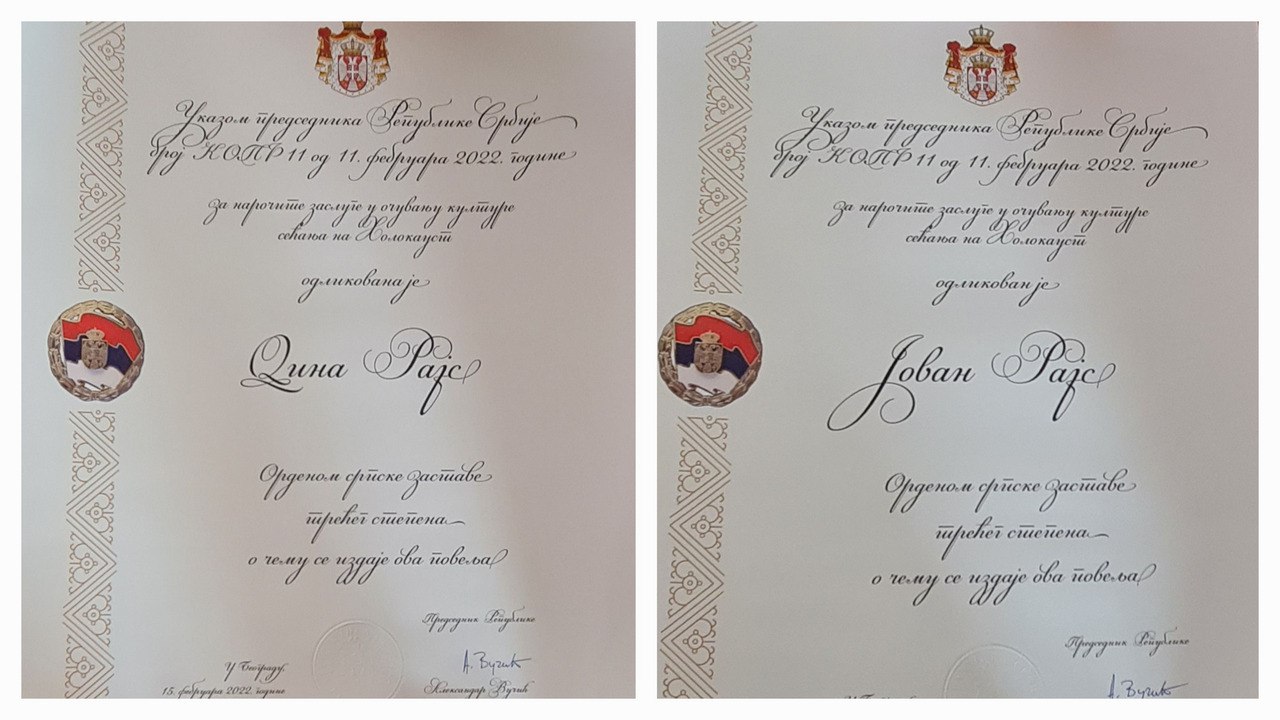 Указом председника Републике Србије
број КОПР 11 од 11. фебруара 2022. године
за нарочите заслуге у очувању културе
сећања на Холокауст
одликована је
Дина Рајс
Орденом српске заставе
трећег степена
о чему се издаје ова повеља
Председник Републике
У Београду,
А. Вучић
15. фебруара 2022. године
Александар Вучић
Указом председника Републике Србије
број КОПР 11 од 11. фебруара 2022. године
за нарочите заслуге у очувању културе
сећања на Холокауст
одликован је
Јован Рајс
Орденом српске заставе
трећег степена
о чему се издаје ова повеља
Председник Републике
А. Вучић